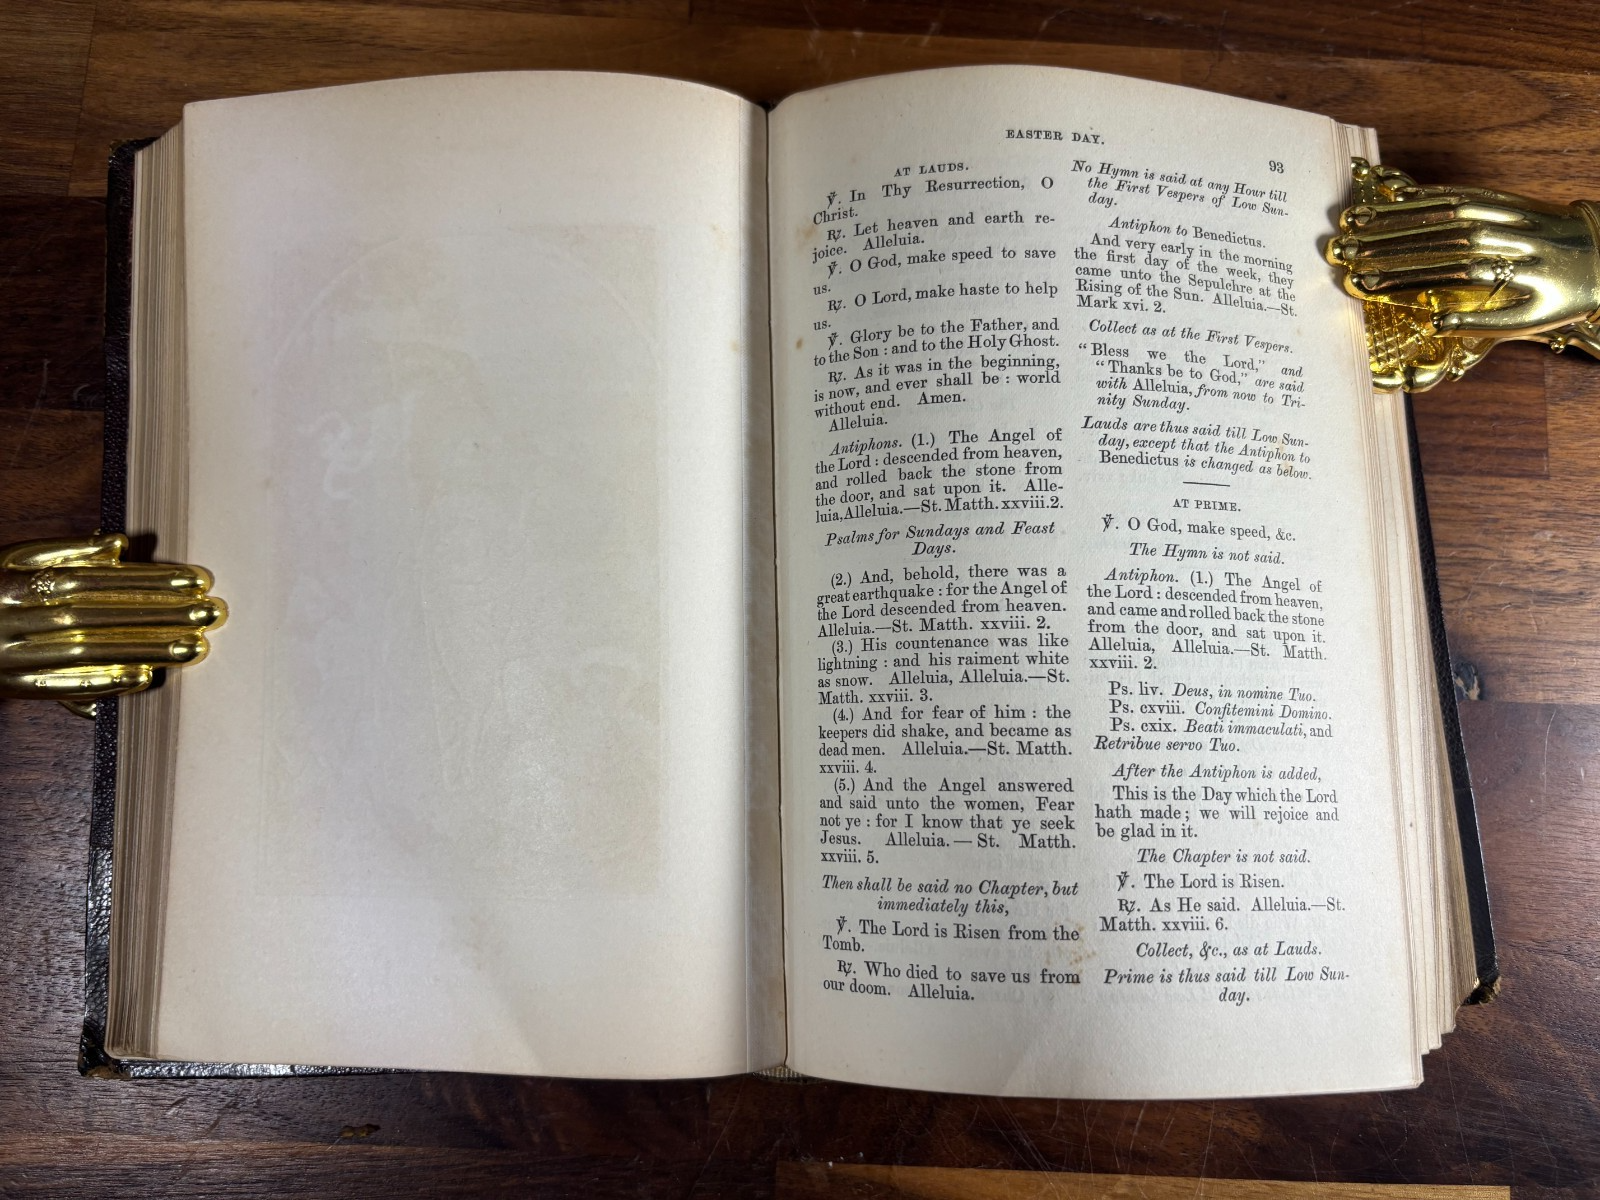 EASTER DAY.
93
AT LAUDS.
℣. In Thy Resurrection, O
Christ.
℟. Let heaven and earth re-
joice. Alleluia.
℣. O God, make speed to save
us.
℟. O Lord, make haste to help
us.
℣. Glory be to the Father, and
to the Son : and to the Holy Ghost.
℟. As it was in the beginning,
is now, and ever shall be : world
without end. Amen.
Alleluia.
Antiphons. (1.) The Angel of
the Lord : descended from heaven,
and rolled back the stone from
the door, and sat upon it. Alle-
luia, Alleluia.—St. Matth. xxviii. 2.
Psalms for Sundays and Feast
Days.
(2.) And, behold, there was a
great earthquake : for the Angel of
the Lord descended from heaven.
Alleluia.—St. Matth. xxviii. 2.
(3.) His countenance was like
lightning : and his raiment white
as snow. Alleluia, Alleluia.—St.
Matth. xxviii. 3.
(4.) And for fear of him : the
keepers did shake, and became as
dead men. Alleluia.—St. Matth.
xxviii. 4.
(5.) And the Angel answered
and said unto the women, Fear
not ye : for I know that ye seek
Jesus. Alleluia. — St. Matth.
xxviii. 5.
Then shall be said no Chapter, but
immediately this,
℣. The Lord is Risen from the
Tomb.
℟. Who died to save us from
our doom. Alleluia.
No Hymn is said at any Hour till
the First Vespers of Low Sun-
day.
Antiphon to Benedictus.
And very early in the morning
the first day of the week, they
came unto the Sepulchre at the
Rising of the Sun. Alleluia.—St.
Mark xvi. 2.
Collect as at the First Vespers.
“Bless we the Lord,” and
“Thanks be to God,” are said
with Alleluia, from now to Tri-
nity Sunday.
Lauds are thus said till Low Sun-
day, except that the Antiphon to
Benedictus is changed as below.
AT PRIME.
℣. O God, make speed, &c.
The Hymn is not said.
Antiphon. (1.) The Angel of
the Lord : descended from heaven,
and came and rolled back the stone
from the door, and sat upon it.
Alleluia, Alleluia.—St. Matth.
xxviii. 2.
Ps. liv. Deus, in nomine Tuo.
Ps. cxviii. Confitemini Domino.
Ps. cxix. Beati immaculati, and
Retribue servo Tuo.
After the Antiphon is added,
This is the Day which the Lord
hath made ; we will rejoice and
be glad in it.
The Chapter is not said.
℣. The Lord is Risen.
℟. As He said. Alleluia.—St.
Matth. xxviii. 6.
Collect, &c., as at Lauds.
Prime is thus said till Low Sun-
day.